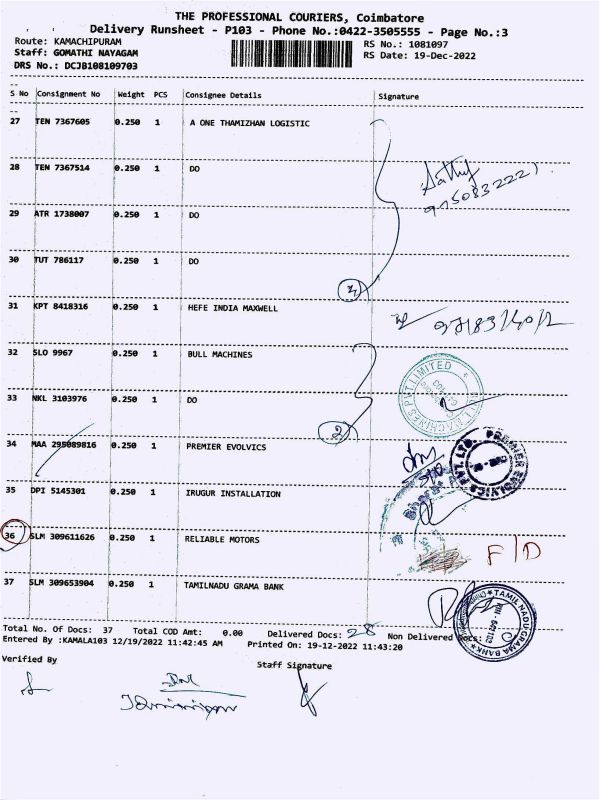 THE PROFESSIONAL COURIERS, Coimbatore
Delivery Runsheet - P103 - Phone No.:0422-3505555 - Page No.:3
Route: KAMACHIPURAM
RS No.: 1081097
Staff: GOMATHI NAYAGAM
RS Date: 19-Dec-2022
DRS No.: DCJB108109703
S No Consignment No Weight PCS Consignee Details Signature
27 TEN 7367605 0.250 1 A ONE THAMIZHAN LOGISTIC
28 TEN 7367514 0.250 1 DO
29 ATR 1738007 0.250 1 DO
30 TUT 786117 0.250 1 DO
31 KPT 8418316 0.250 1 HEFE INDIA MAXWELL
32 SLO 9967 0.250 1 BULL MACHINES
33 NKL 3103976 0.250 1 DO
2
34 MAA 295089816 0.250 1 PREMIER EVOLVICS
35 DPI 5145301 0.250 1 IRUGUR INSTALLATION
36 SLM 309611626 0.250 1 RELIABLE MOTORS F/D
37 SLM 309653904 0.250 1 TAMILNADU GRAMA BANK
Total No. Of Docs: 37 Total COD Amt: 0.00 Delivered Docs: 28 Non Delivered Docs:
Entered By :KAMALA103 12/19/2022 11:42:45 AM Printed On: 19-12-2022 11:43:20
Verified By Staff Signature